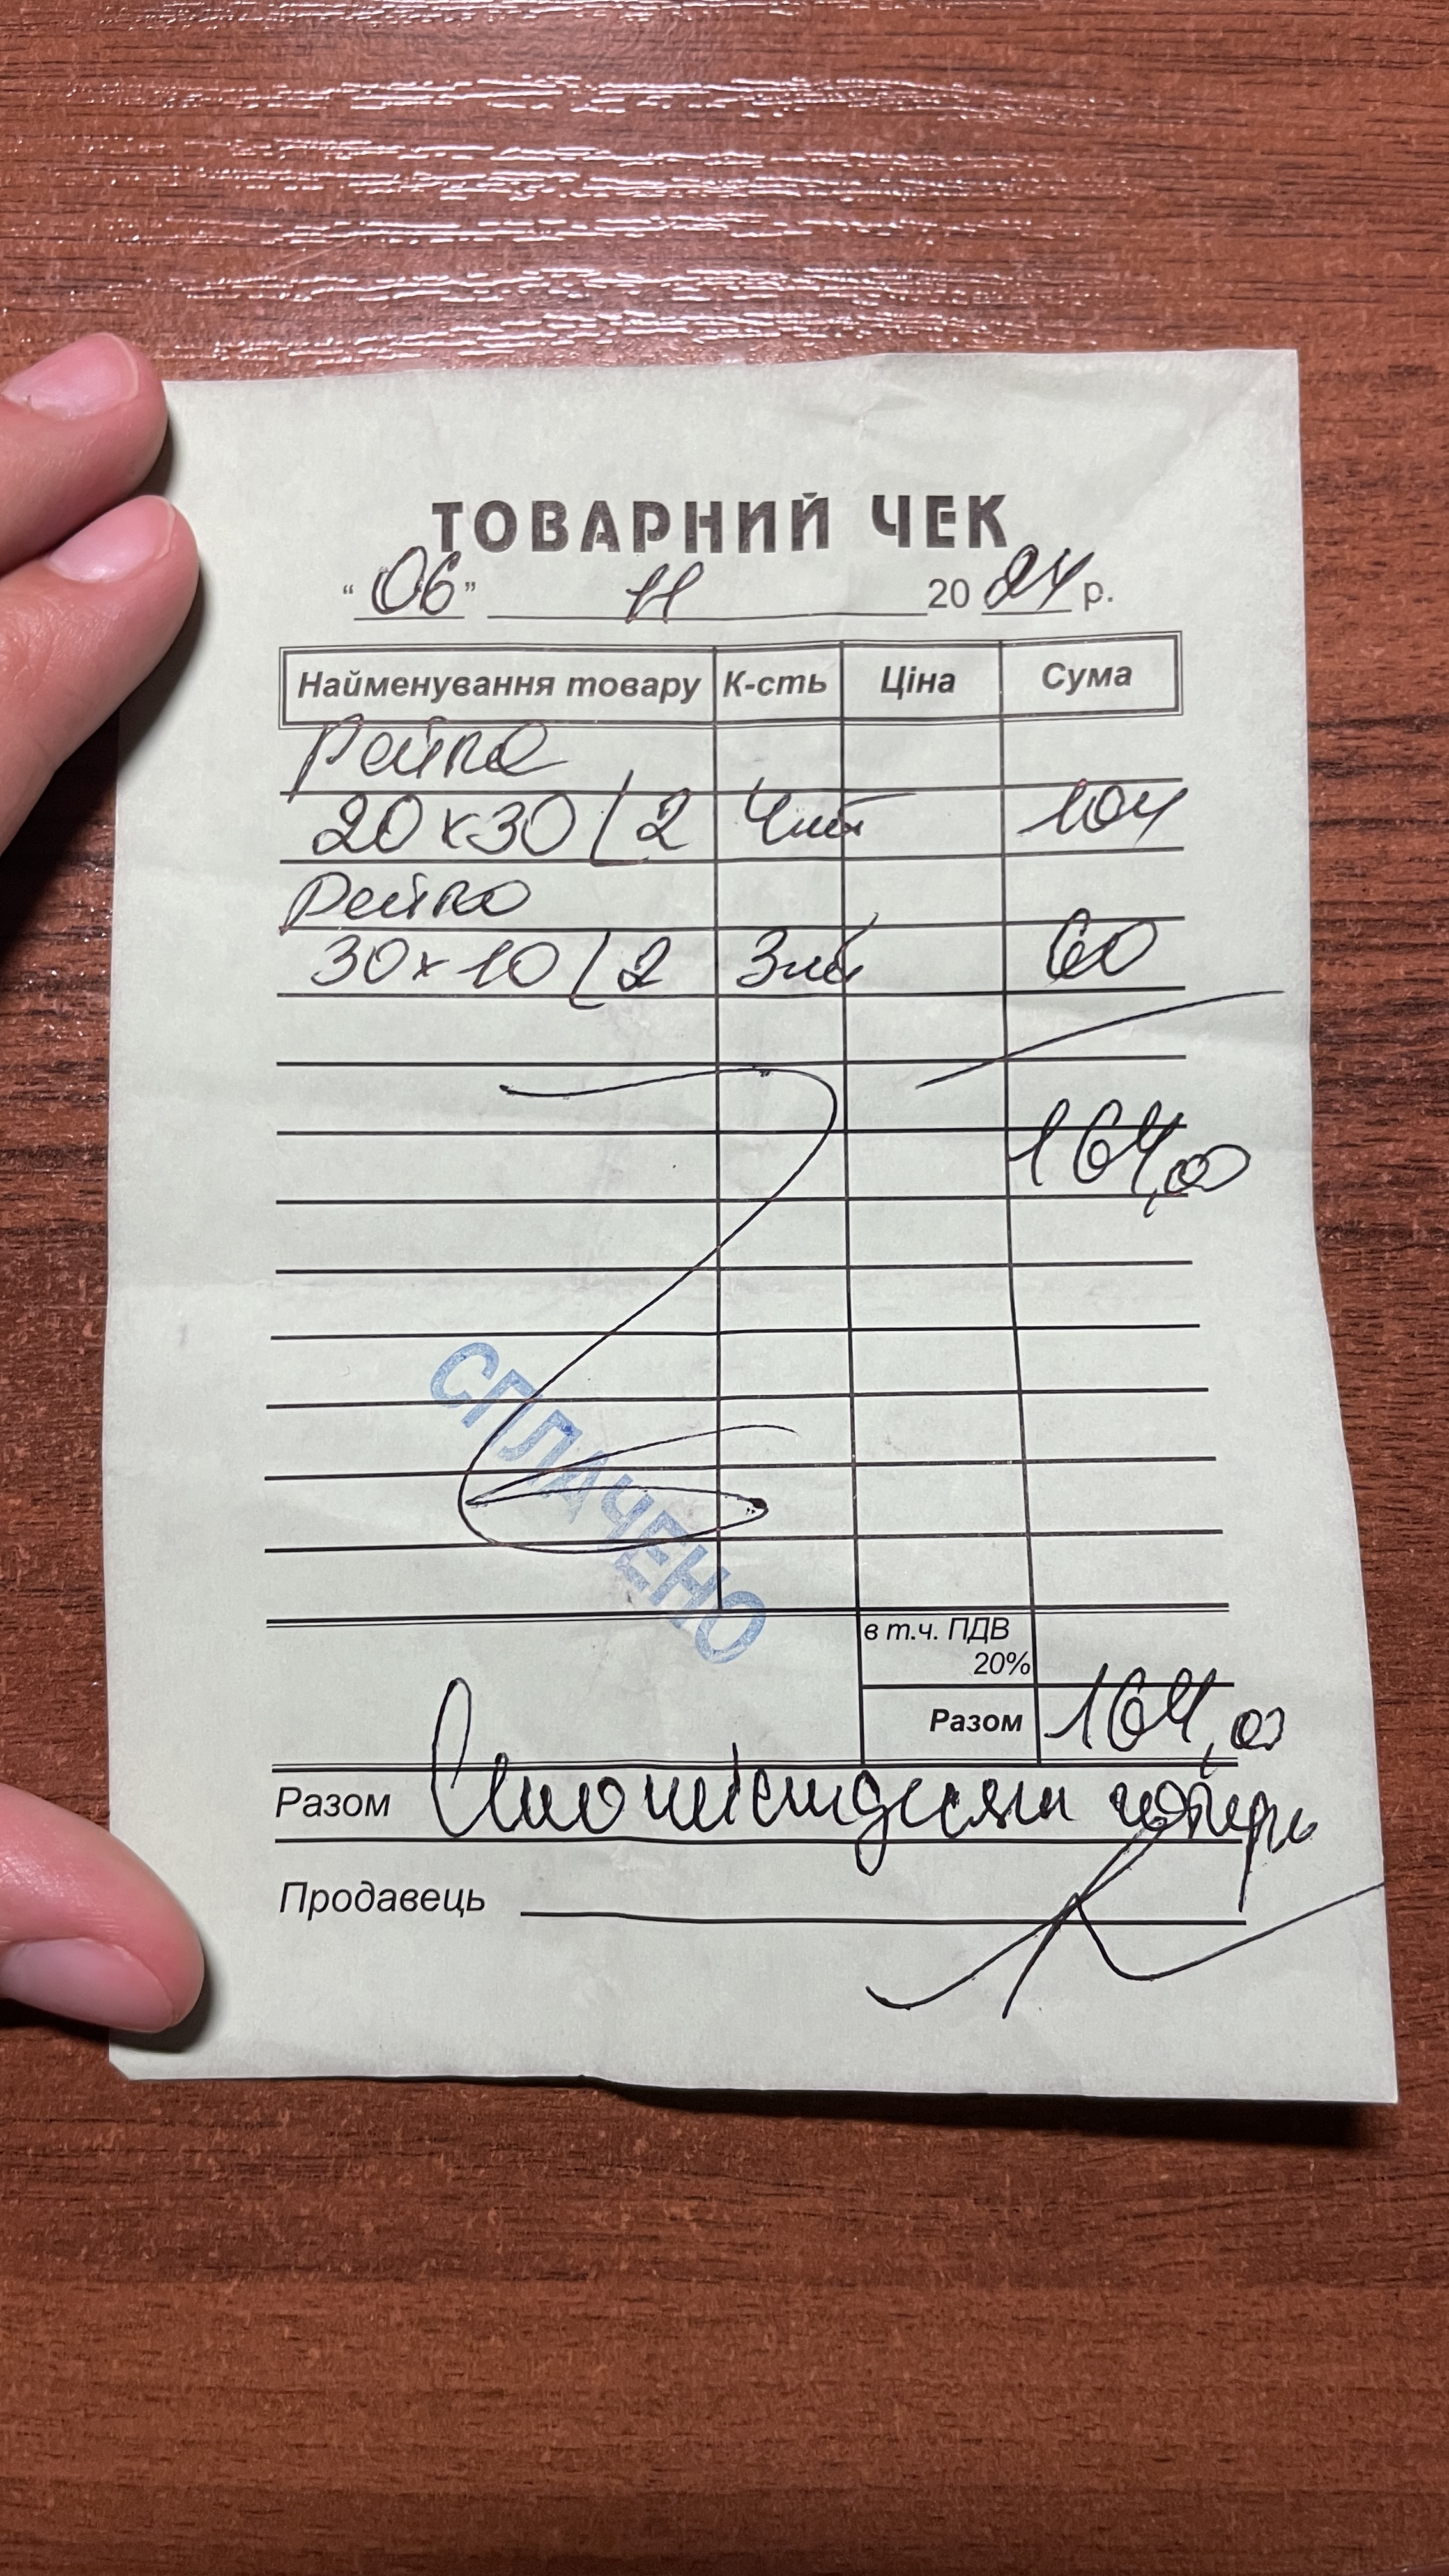 ТОВАРНИЙ ЧЕК
“ 06 ” 11 20 24 р.
Найменування товару К-сть Ціна Сума
Рейка
20х30 L2 4шт 104
Рейка
30х10 L2 3шт 60
164,00
СПЛАЧЕНО
в т.ч. ПДВ
20%
Разом 164,00
Разом Сто шістдесят чотири
Продавець